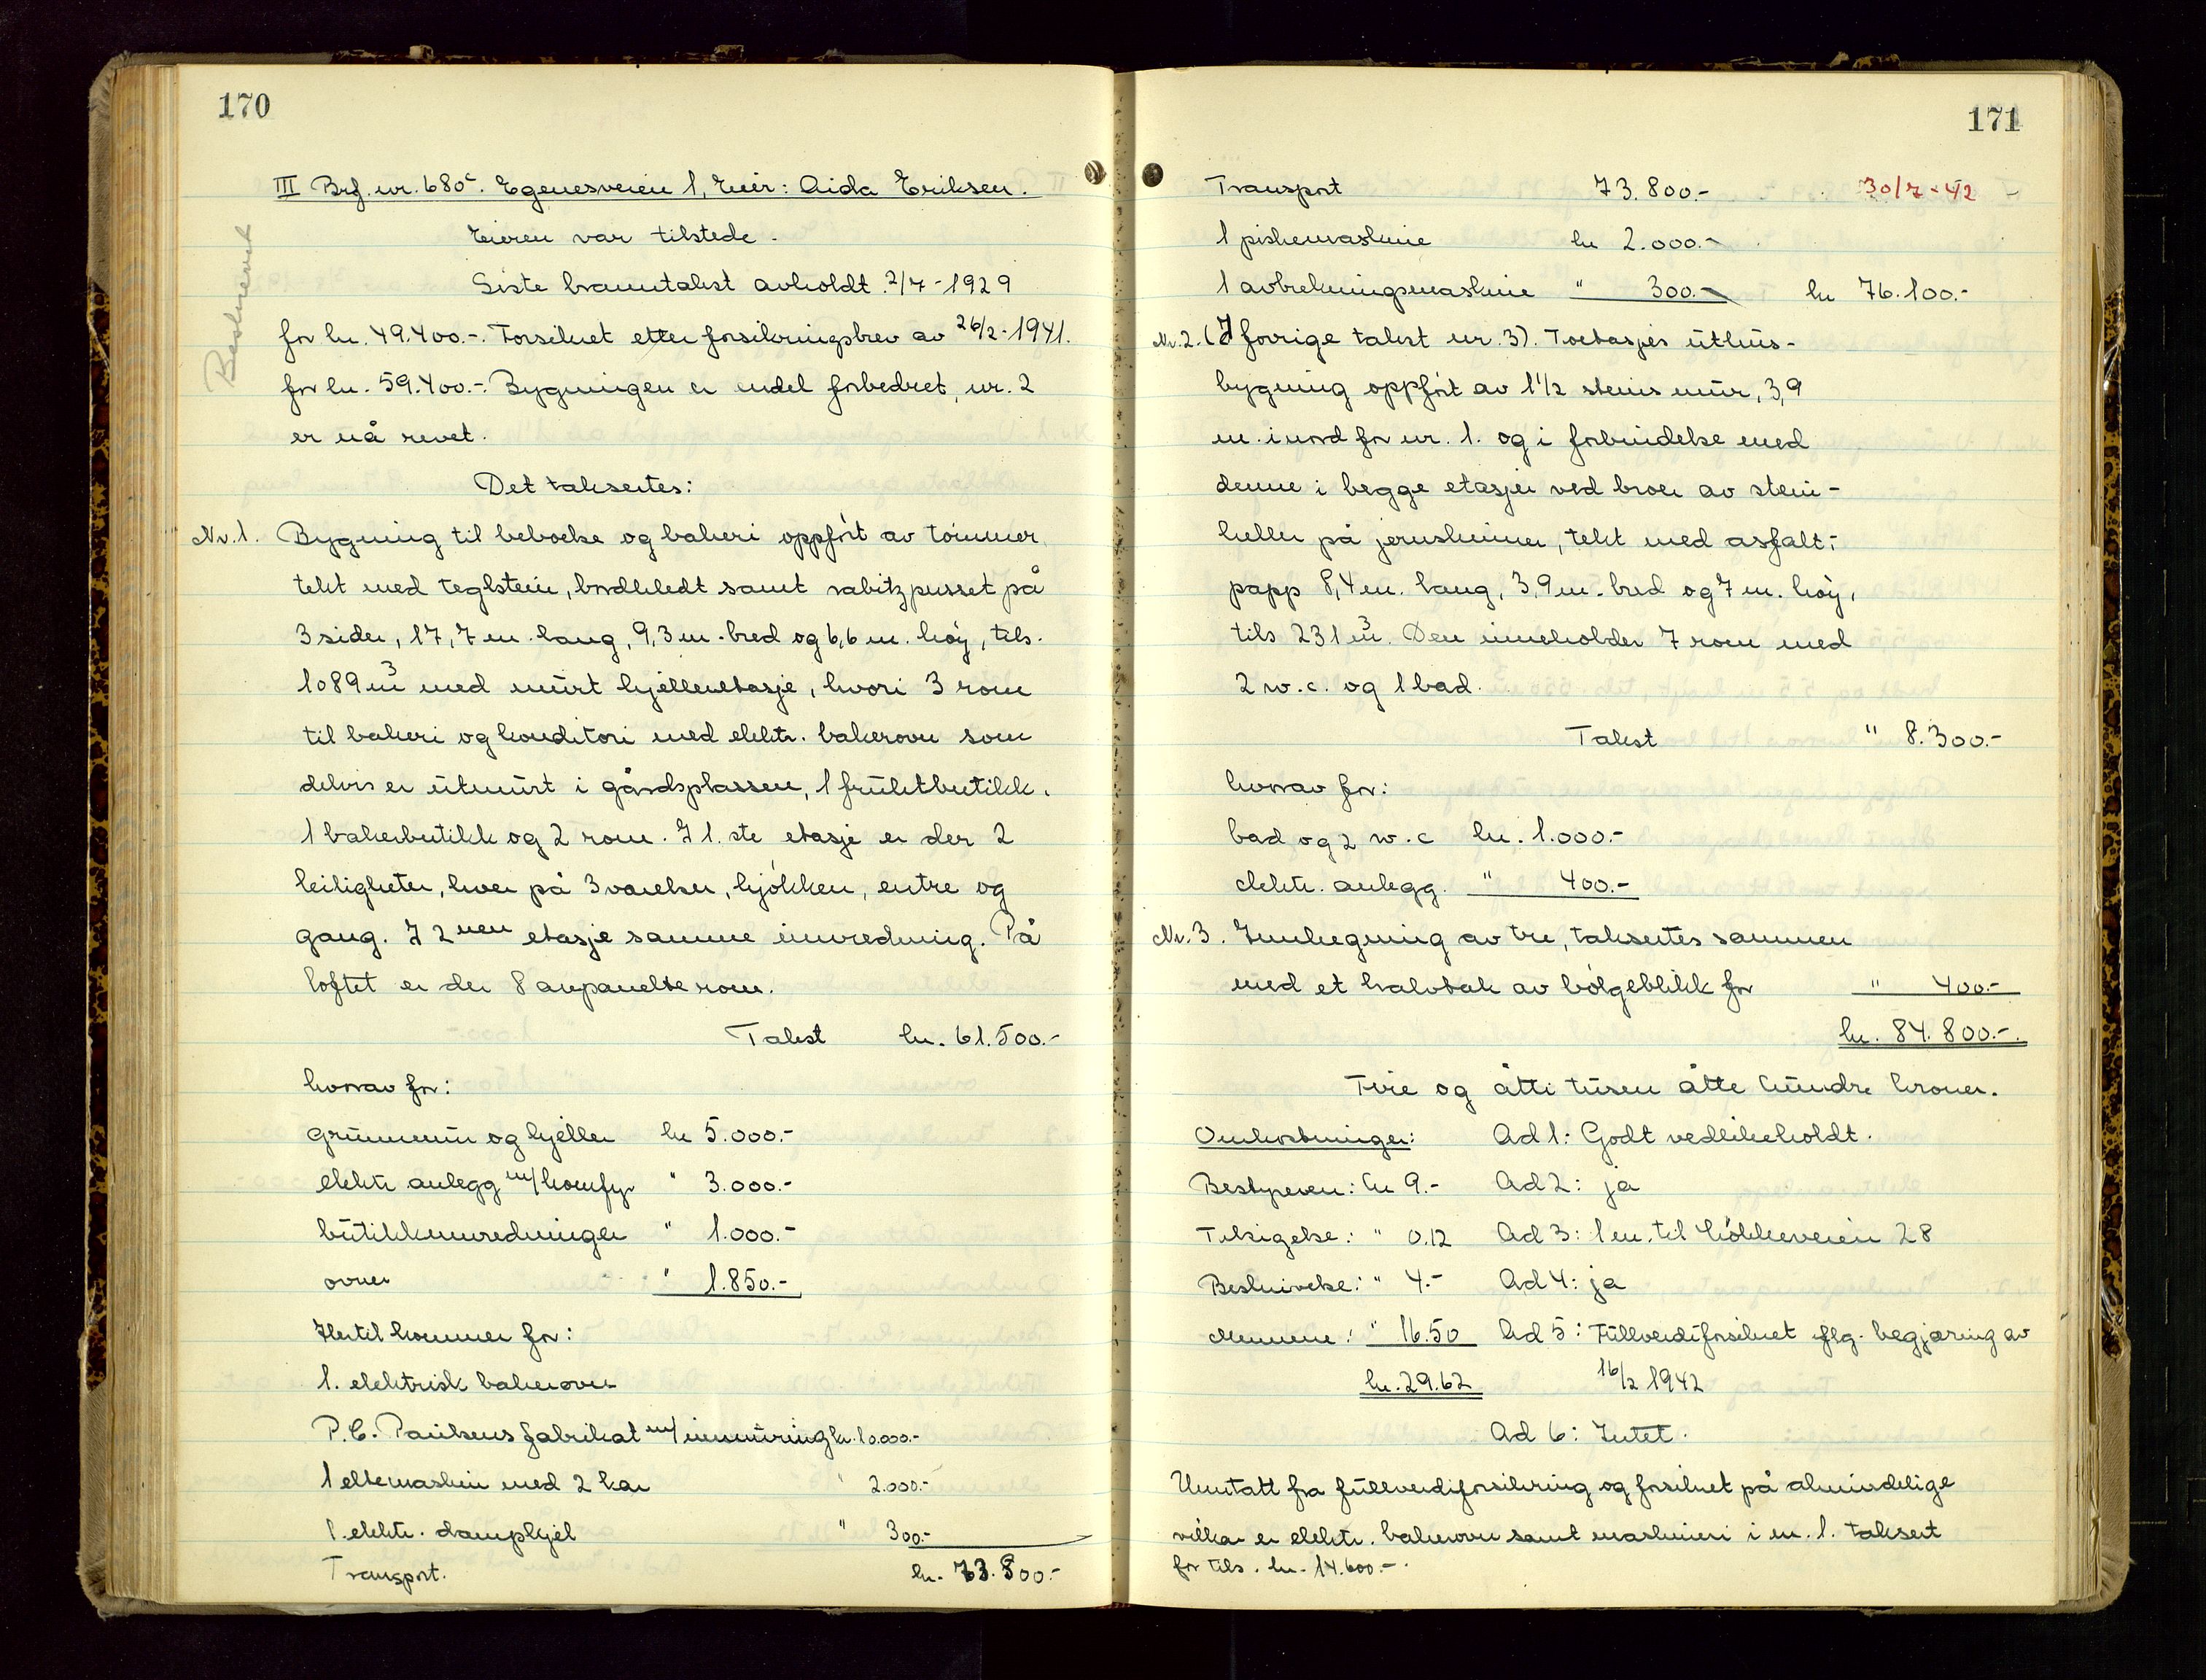 170
III Brf. nr. 685. Egenesveien 1, Eier: Aida Eriksen.
Eieren var tilstede.
Siste branntakst avholdt 2/7-1929
for kr. 49.400.-. Forsikret etter forsikringsbrev av 26/2-1941.
for kr. 59.400.-. Bygningen er endel forbedret, nr. 2
er nå revet.
Det taksertes:
Nr. 1. Bygning til beboelse og bakeri oppført av tømmer
tekt med teglstein, bordkledt samt rabitzpusset på
3 sider, 17,7 m. lang, 9,3 m. bred og 6,6 m. høy, tils.
1089 m³ med murt kjelleretasje, hvori 3 rom
til bakeri og konditori med elektr. bakerovn som
delvis er utmurt i gårdsplassen, 1 fruktbutikk.
1 bakerbutikk og 2 rom. I 1. ste etasje er der 2
leiligheter, hver på 3 værelser, kjøkken, entre og
gang. I 2nen etasje samme innredning. På
loftet er der 8 avpanelte rom.
Takst kr. 61.500.-
hvorav for:
grunnmur og kjeller kr 5.000.-
elektr anlegg m/komfyr " 3.000.-
butikkinnredninger " 1.000.-
ovner " 1.850.-
Hertil kommer for:
1. elektrisk bakerovn
P.C. Paulsens fabrikat m/innmuring kr. 10.000.-
1 eltemaskin med 2 kar " 2.000.-
1. elektr. dampkjel " 300.-
Transport. kr. 73.800.-
Beskrevet
171
Transport 73.800.- 30/7-42
1 piskemaskine kr 2.000.-
1 avbrekningsmaskine " 300.- kr 76.100.-
Nr. 2. (I forrige takst nr. 3). Toetasjes uthus-
bygning oppført av 1 1/2 steins mur, 3,9
m. i nord for nr. 1. og i forbindelse med
denne i begge etasjer ved broer av stein-
heller på jernskinner, tekt med asfalt-
papp 8,4 m. lang, 3,9 m. bred og 7 m. høy,
tils 231 m³. Den inneholder 7 rom med
2 w.c. og 1 bad.
Takst " 8.300.-
hvorav for:
bad og 2 w.c kr. 1.000.-
elektr. anlegg. " 400.-
Nr. 3. Innhegning av tre, taksertes sammen
med et halvtak av bølgeblikk for " 400.-
kr. 84.800.-.
Fire og åtti tusen åtte hundre kroner.
Omkostninger: Ad 1: Godt vedlikeholdt.
Bestyreren: kr 9.- Ad 2: ja
Tilsigelse: " 0.12 Ad 3: 1 m. til Løkkeveien 28
Beskrivelse: " 4.- Ad 4: ja
Mennene: " 16.50 Ad 5: Fullverdiforsikret iflg. begjæring av
kr. 29.62 16/2 1942
Ad 6: Intet.
Unntatt fra fullverdiforsikring og forsikret på almindelige
vilkår er elektr. bakerovn samt maskineri i nr. 1. taksert
for tils. kr. 14.600.-.